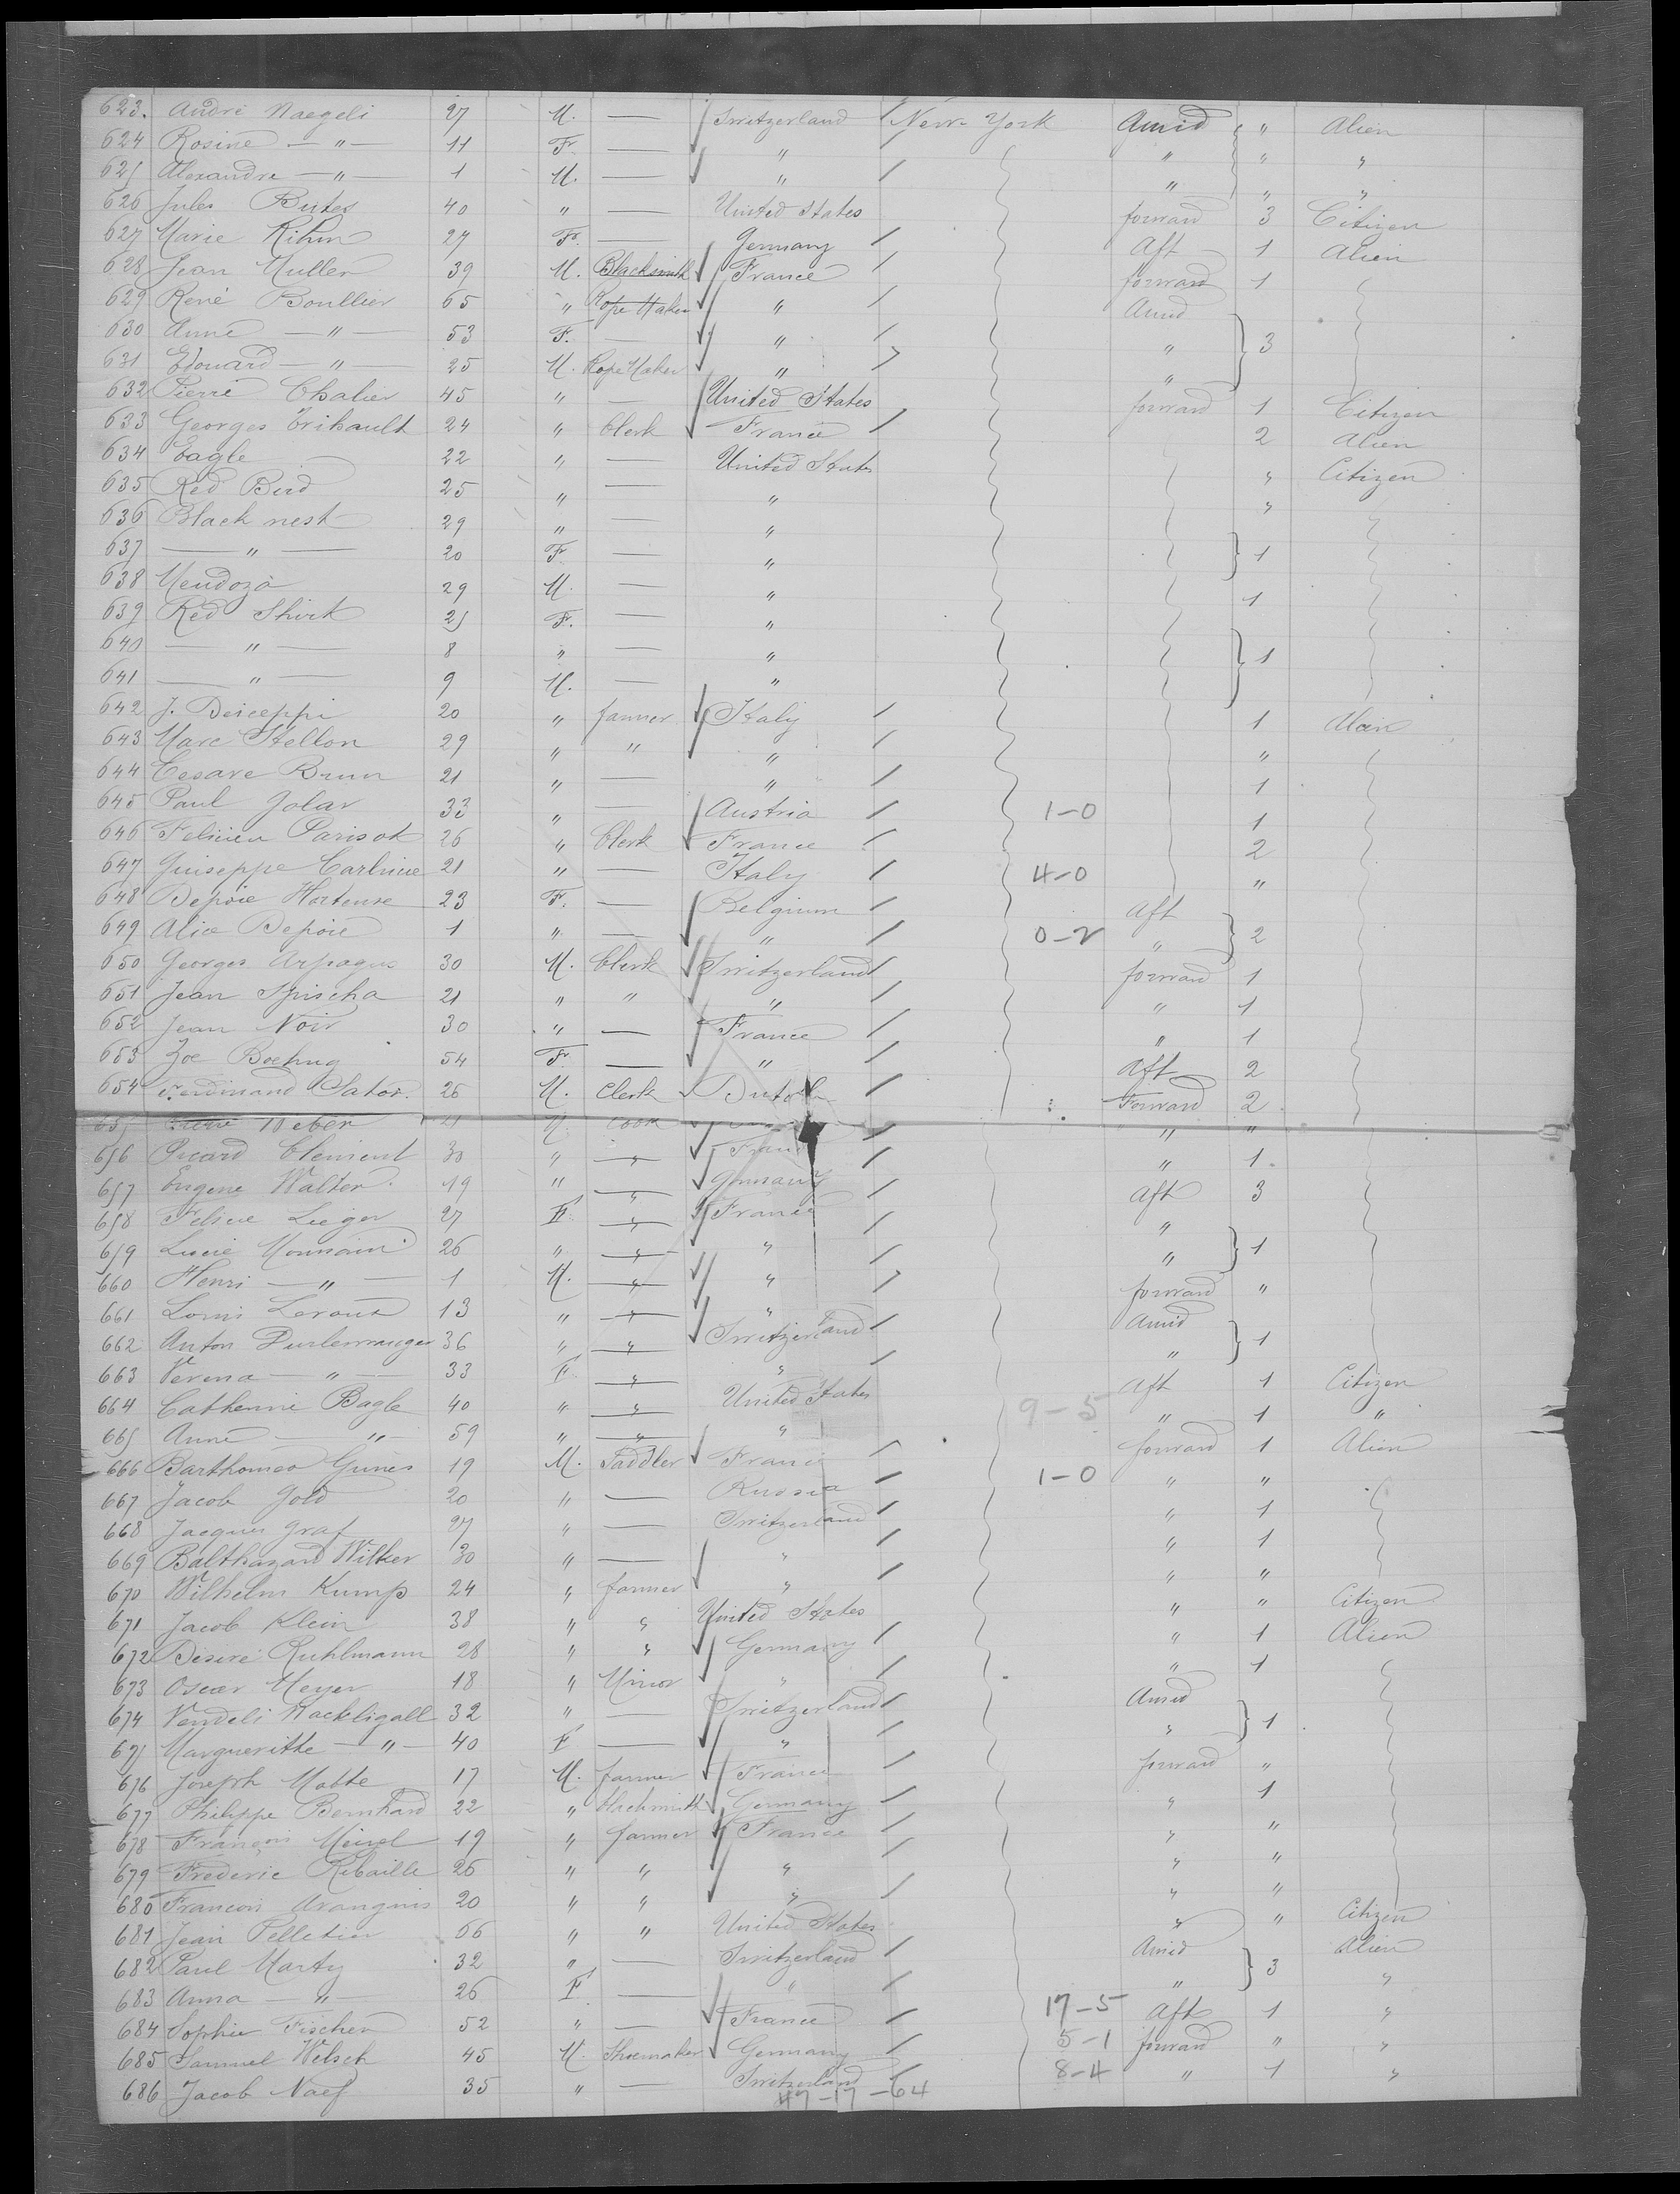 623. André Naegeli 27 M. — Switzerland New York Amid " Alien
624 Rosine — " — 11 F. — " " " "
625 Alexandre — " — 1 M. — " " " "
626 Jules Butes 40 " — United States forward 3 Citizen
627 Marie Rihm 27 F. — Germany Aft 1 Alien
628 Jean Muller 39 M. Blacksmith France forward 1
629 René Boullier 65 " Rope Maker " Amid
630 Anne — " — 53 F. — " " 3
631 Edouard — " — 25 M. Rope Maker " "
632 Pierre Chalier 45 " — United States forward 1 Citizen
633 Georges Tribault 24 " Clerk France 2 Alien
634 Eagle 22 " — United States " Citizen
635 Red Bird 25 " — " "
636 Black nest 29 " — "
637 — " — 20 F. — " 1
638 Mendoza 29 M. — " 1
639 Red Shirt 25 F. — "
640 — " — 8 " — " 1
641 — " — 9 M. — "
642 J. Deiceppi 20 " farmer Italy 1 Alien
643 Marc Stellon 29 " " " "
644 Cesare Brun 21 " — " 1
645 Paul Jolar 33 " — Austria 1-0 1
646 Felicien Parisot 26 " Clerk France 2
647 Guiseppe 21 " — Italy 4-0 "
648 Depoie Hortense 23 F. — Belgium Aft
649 Alice Depoie 1 " — " 0-2 " 2
650 Georges Arpagus 30 M. Clerk Switzerland forward 1
651 Jean Spischa 21 " " " " 1
652 Jean Noir 30 " — France " 1
653 Zoe Boehng 54 F. — " Aft 2
654 Ferdinand Sator. 26 M. Clerk Dutch Forward 2
655 Weber 21 M. Cook " "
656 Picard Clement 30 " — France " 1
657 Eugene Walter 19 " — Germany Aft 3
658 Felicie Lieger 27 F. — France "
659 Lucie 26 " — " " 1
660 Henri — " — 1 M. — " forward "
661 Louis Leroux 13 " — " Amid
662 Anton 36 " — Switzerland " 1
663 Verena — " — 33 F. — " Aft 1 Citizen
664 Catherine Bagle 40 " — United States 9-5 " 1 "
665 Anne — " — 59 " — " forward 1 Alien
666 Barthomeo Gunes 19 M. Saddler France 1-0 " "
667 Jacob Gold 20 " — Russia " 1
668 Jacques Graf 27 " — Switzerland " 1
669 Balthazard Wilker 30 " — " " "
670 Wilhelm Kump 24 " farmer " " " Citizen
671 Jacob Klein 38 " " United States " 1 Alien
672 Desiré Ruhlmann 28 " " Germany " 1
673 Oscar Meyer 18 " Minor " Amid
674 Vendeli Nackligall 32 " — Switzerland " 1
675 Margueritte — " — 40 F. — " forward "
676 Joseph Motte 17 M. farmer France " 1
677 Philippe Bernhard 22 " blacksmith Germany " "
678 François 19 " farmer France " "
679 Frederic Ribaille 26 " " " " "
680 Francois Aranguis 20 " " " " " Citizen
681 Jean Pelletier 66 " " United States Amid Alien
682 Paul Marty 32 " — Switzerland " 3 "
683 Anna — " — 26 F. — " 17-5 Aft 1 "
684 Sophie Fischer 52 " — France 5-1 forward " "
685 Samuel Welsch 45 M. Shoemaker Germany 8-4 " 1 "
686 Jacob Naef 35 " — Switzerland
47-17-64